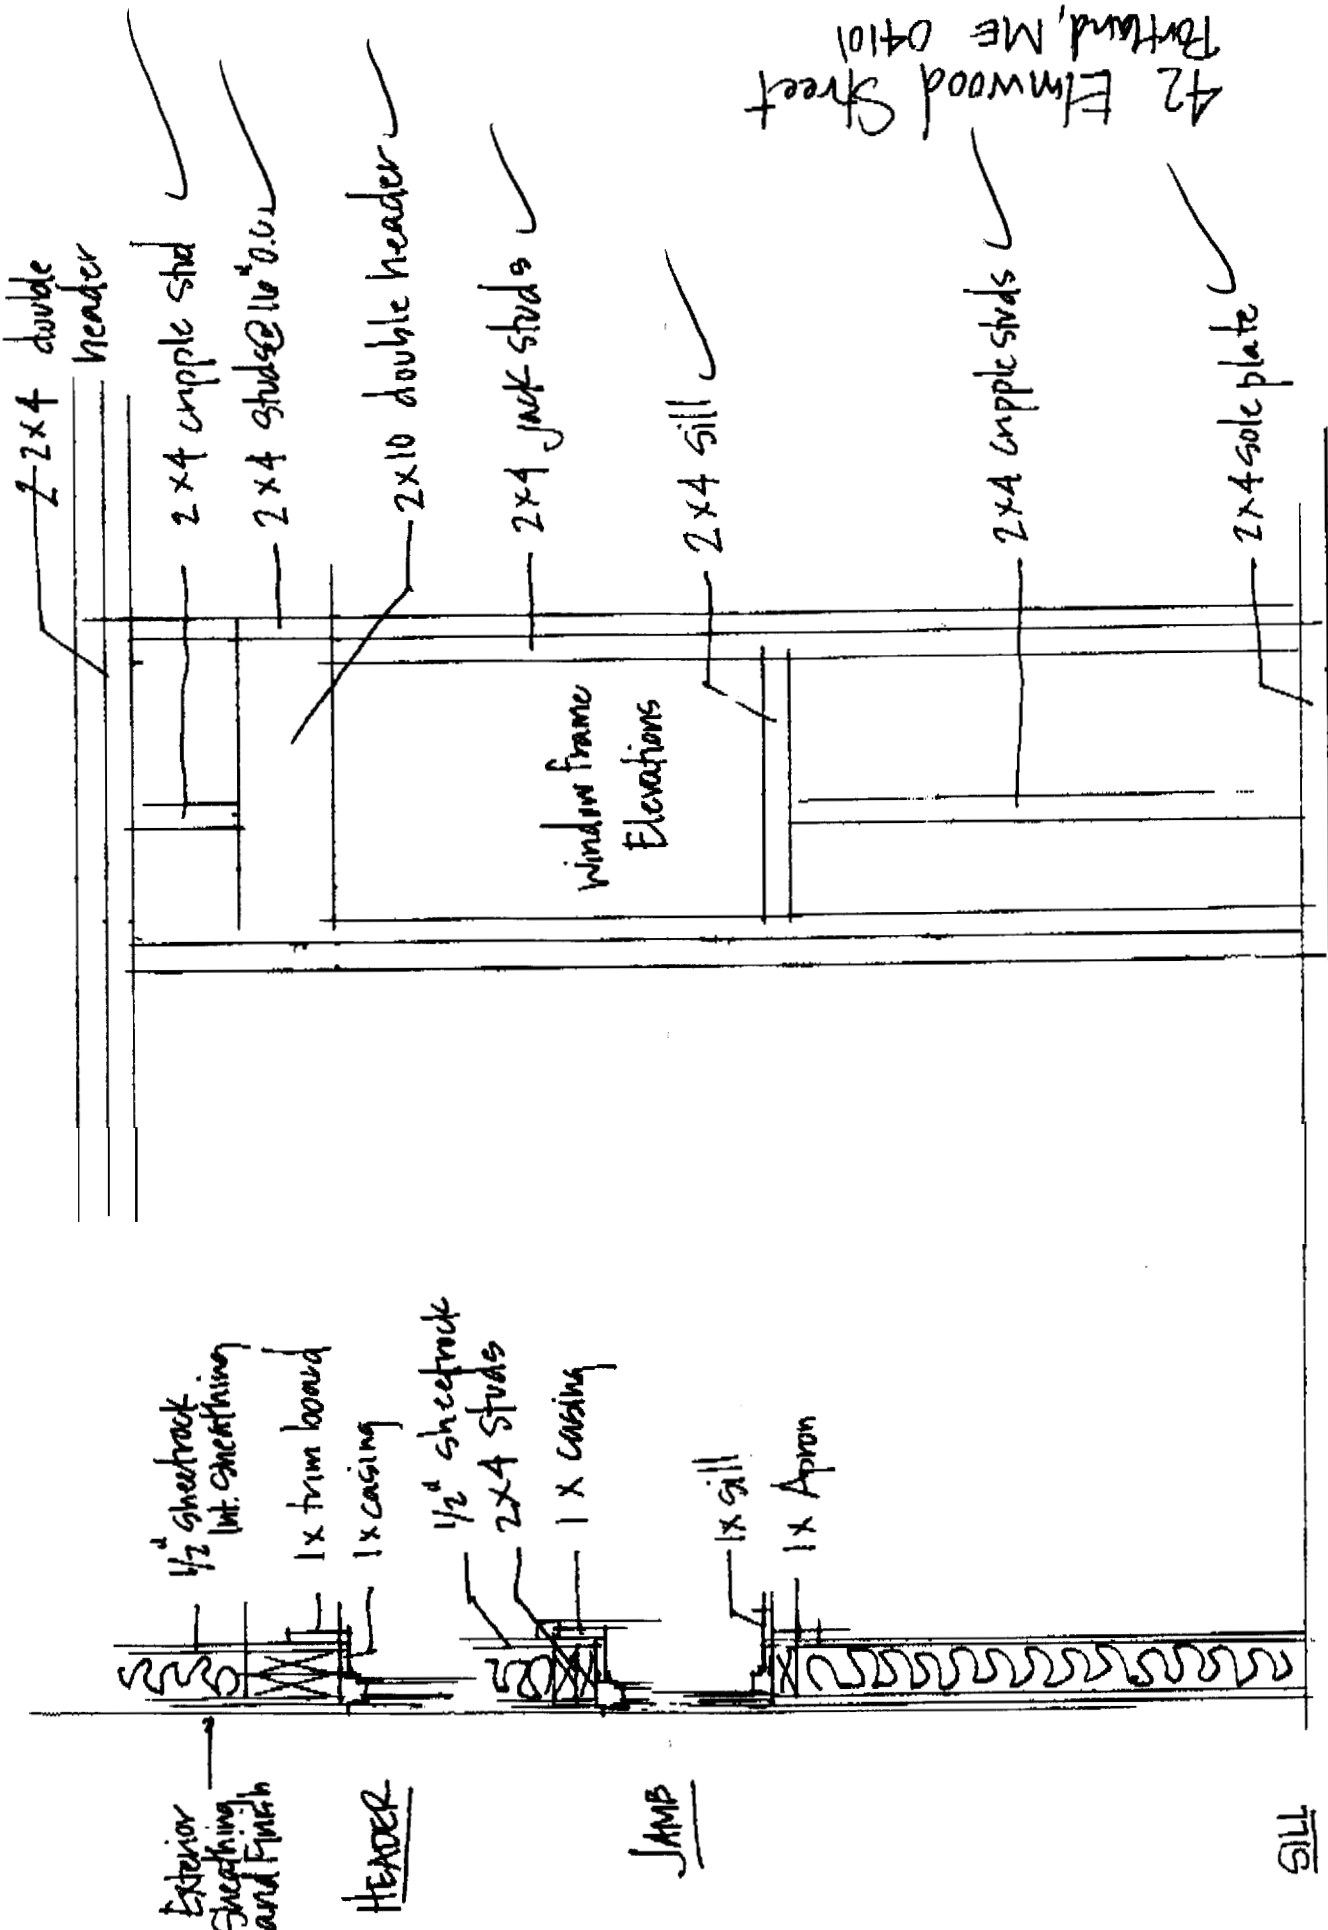 2-2x4 double
header
2x4 cripple stud
2x4 studs@16" O.C.
2x10 double header
2x4 jack studs
2x4 sill
2x4 cripple studs
2x4 sole plate
Window frame
Elevations
42 Elmwood Street
Portland, ME 04101
1/2" sheetrock
Int. Sheathing
1x trim board
1x casing
1/2" sheetrock
2x4 studs
1x casing
1x sill
1x Apron
Exterior
Sheathing
and Finish
HEADER
JAMB
SILL